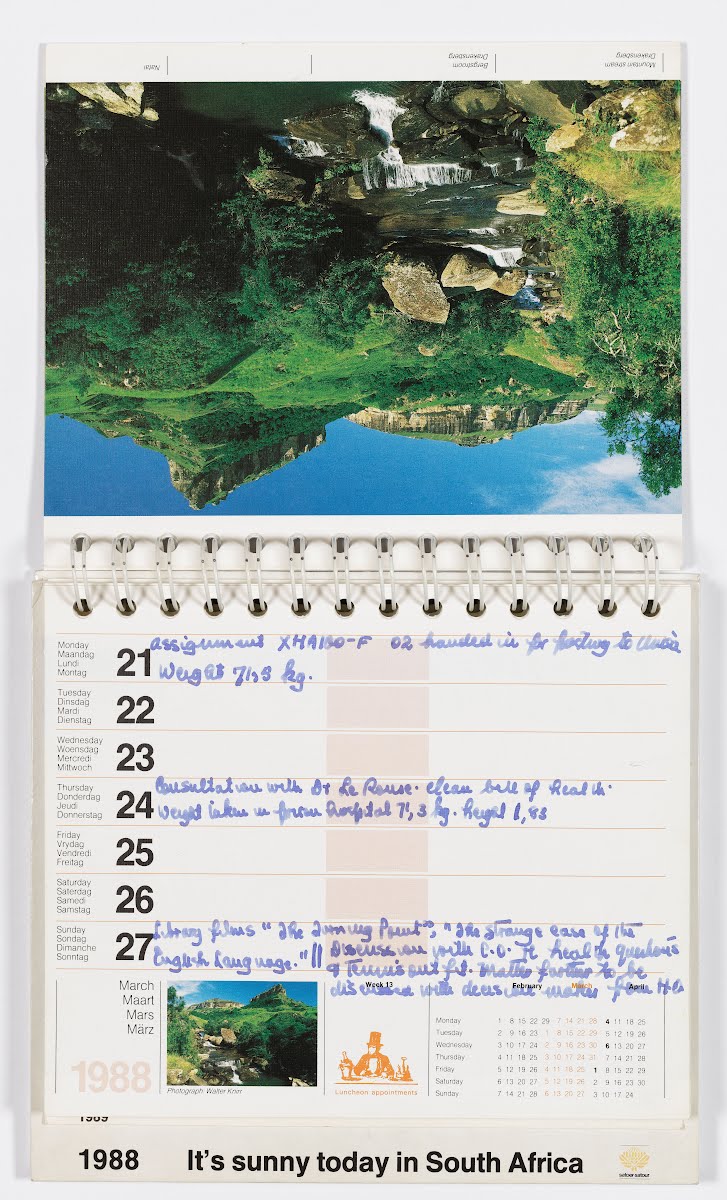 Mountain stream
Drakensberg
Bergstroom
Drakensberg
Natal
Monday
Maandag
Lundi
Montag
21
assignment XHA100-F 02 handed in for posting to Unisa
Weight 71,3 kg.
Tuesday
Dinsdag
Mardi
Dienstag
22
Wednesday
Woensdag
Mercredi
Mittwoch
23
Thursday
Donderdag
Jeudi
Donnerstag
24
Consultation with Dr Le Rouse. clean bill of health.
Weight taken in prison hospital 71,3 kg. heigt 1,83
Friday
Vrydag
Vendredi
Freitag
25
Saturday
Saterdag
Samedi
Samstag
26
Sunday
Sondag
Dimanche
Sonntag
27
Library films "The Turning Point", "The strange case of the
English Language." || Discussion with C.O. re health questions
& tennis outfit. Matter further to be
discussed with decision maker from H.O.
March
Maart
Mars
März
1988
Photograph: Walter Knirr
Week 13
Luncheon appointments
February March April
Monday 1 8 15 22 29 7 14 21 28 4 11 18 25
Tuesday 2 9 16 23 1 8 15 22 29 5 12 19 26
Wednesday 3 10 17 24 2 9 16 23 30 6 13 20 27
Thursday 4 11 18 25 3 10 17 24 31 7 14 21 28
Friday 5 12 19 26 4 11 18 25 1 8 15 22 29
Saturday 6 13 20 27 5 12 19 26 2 9 16 23 30
Sunday 7 14 21 28 6 13 20 27 3 10 17 24
1989
1988 It's sunny today in South Africa
satoer·satour